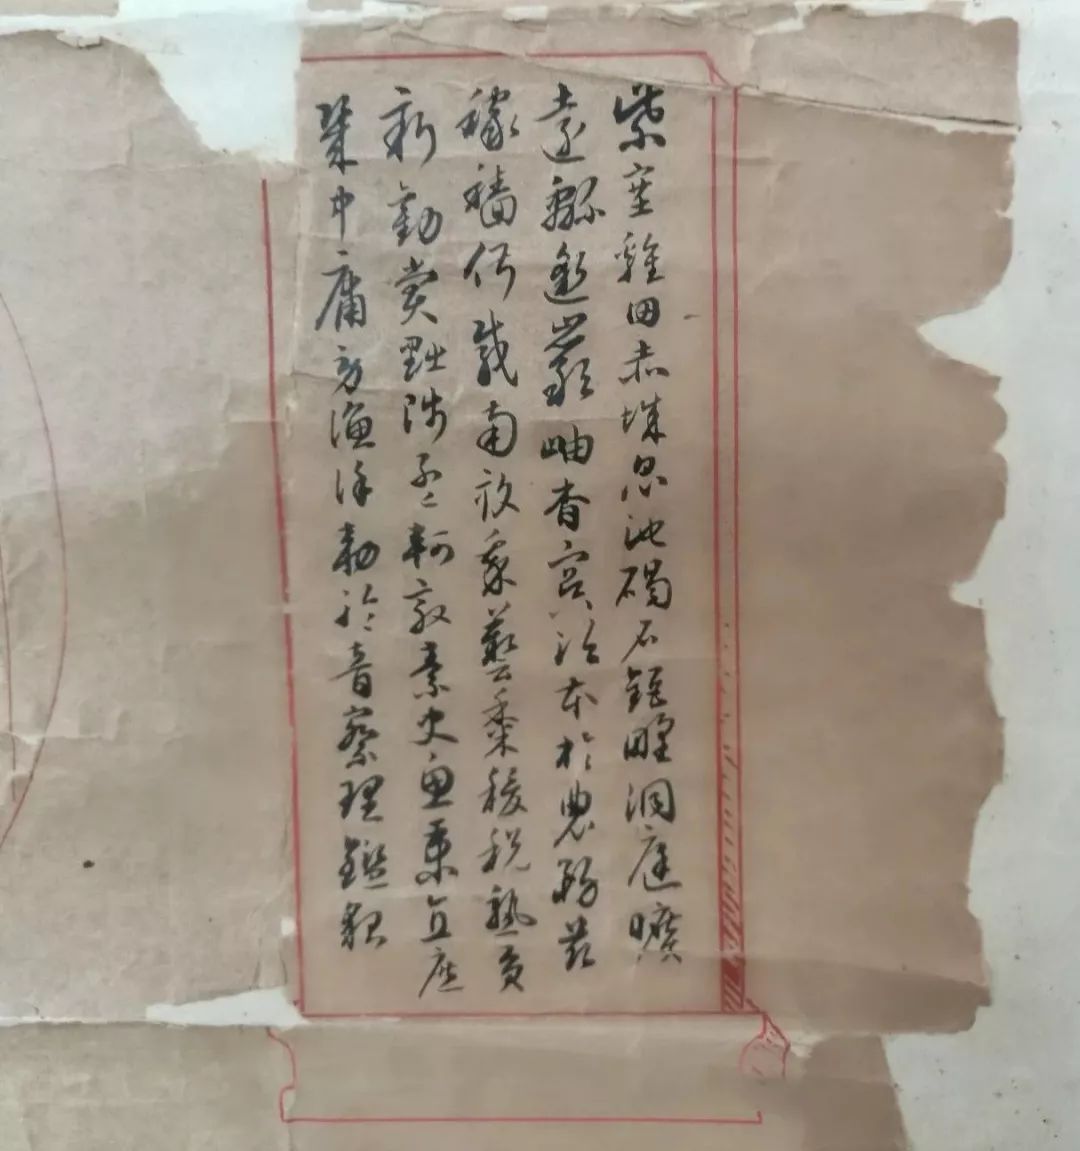 紫塞雞田赤城昆池碣石鉅野洞庭曠
遠緜邈巖岫杳冥治本於農務茲
稼穡俶載南畝我藝黍稷稅熟貢
新勸賞黜陟孟軻敦素史魚秉直庶
幾中庸勞謙謹勅聆音察理鑑貌